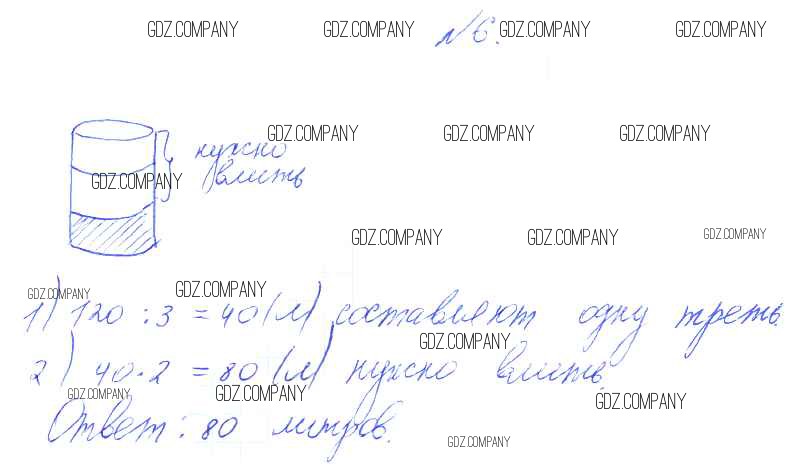 GDZ.COMPANY GDZ.COMPANY GDZ.COMPANY GDZ.COMPANY
№6.
GDZ.COMPANY GDZ.COMPANY GDZ.COMPANY
нужно
влить
GDZ.COMPANY
GDZ.COMPANY GDZ.COMPANY GDZ.COMPANY
GDZ.COMPANY GDZ.COMPANY
1) 120 : 3 = 40 (л) составляют одну треть.
GDZ.COMPANY
2) 40 · 2 = 80 (л) нужно влить.
GDZ.COMPANY GDZ.COMPANY GDZ.COMPANY
Ответ: 80 литров.
GDZ.COMPANY